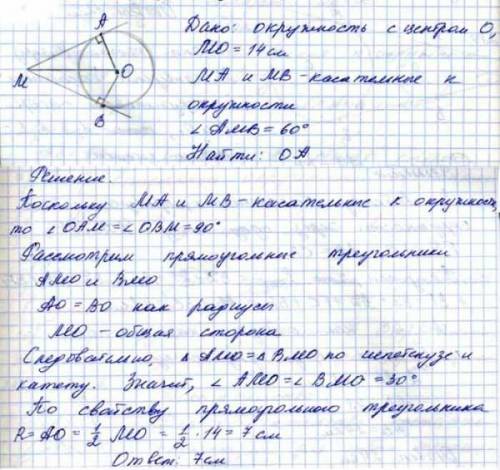 A
M
O
B
Дано: окружность с центром О,
МО = 14 см
МА и МВ - касательные к
окружности
∠АМВ = 60°
Найти: ОА
Решение.
Поскольку МА и МВ - касательные к окружности,
то ∠ОАМ = ∠ОВМ = 90°
Рассмотрим прямоугольные треугольники
АМО и ВМО
АО = ВО как радиусы
МО - общая сторона
Следовательно, △ АМО = △ ВМО по гипотенузе и
катету. Значит, ∠ АМО = ∠ ВМО = 30°
По свойству прямоугольного треугольника
R = АО = 1/2 МО = 1/2 · 14 = 7 см
Ответ: 7 см